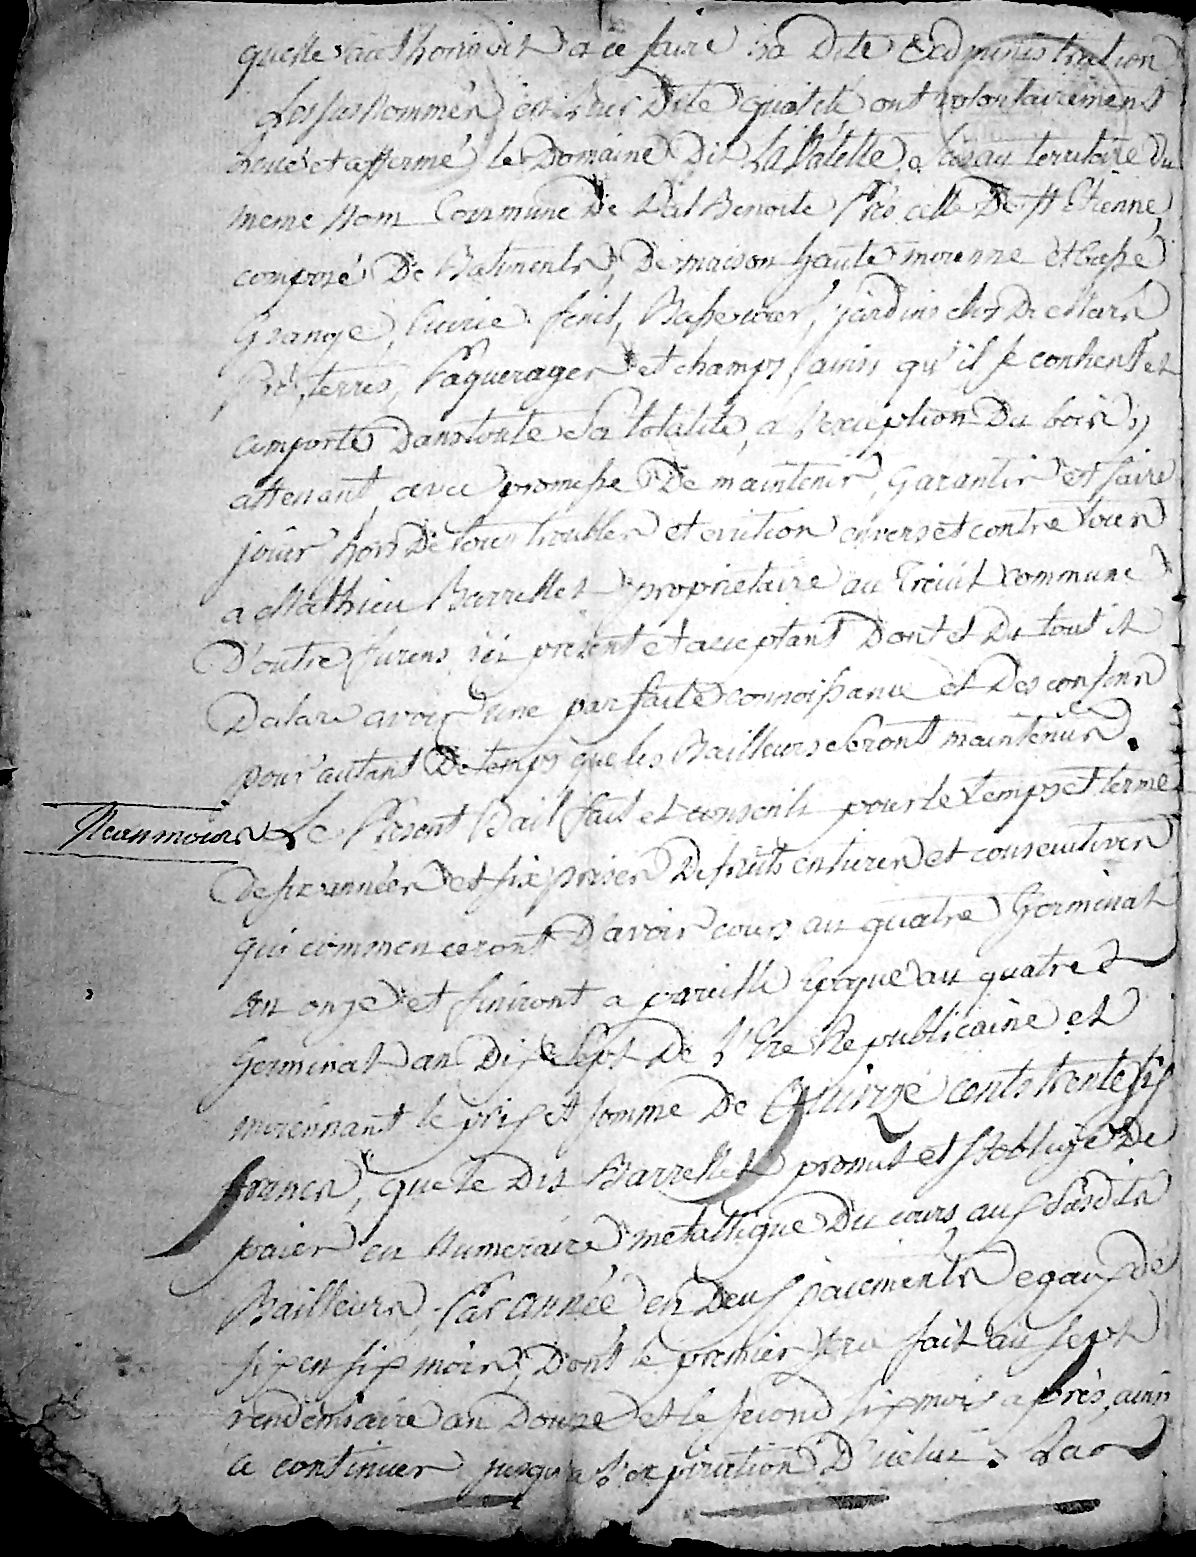 quelle authorisat a ce faire sa dite Administration
Les susnommés en leur dite qualité ont volontairement
loué et affermé le Domaine Dit La Valette, e sis au territoire du
meme nom Commune De Valbenoite Près celle De St Etienne,
composé De Batiments, De maison haute moienne et basse
Grange, Ecurie, fenil, Basse cour, jardins clos De Murs,
Pré, terres, Paquerages et champs, ainsi qu'il se contient et
comporte Dans toute Sa totalité, a l'exception Du bois y
attenant, avec promesse De maintenir, Garantir et faire
jouir hors De tous troubles et eviction envers et contre tous
a Mathieu Barrellet proprietaire au Treuil commune
D'outre furens, ici présent et acceptant Dont et Du tout il
Declare avoir une parfaite connoissance et Des confins
pour autant De temps que les Bailleurs seront maintenus.
Neanmoins Le Present Bail fait et consenti pour le temps et terme
de six années et six prises De fruits entieres et consecutives
qui commenceront D'avoir cours au quatre Germinal
an onze et finiront a pareille Epoque au quatre
Germinal an Dix Sept De l'Ere Republicaine et
moiennant le prix et somme De Quinze cents trente six
francs, que le Dit Barrellet promet et s'oblige De
paier en Numeraire metallique Du cours aux Susdits
Bailleurs, Par année en Deux paiements egaux de
six en six mois, Dont le premier sera fait au sept
vendemiaire an Douze et le second six mois après, ainsi
a continuer jusqu'a l'expiration D'icelui. La